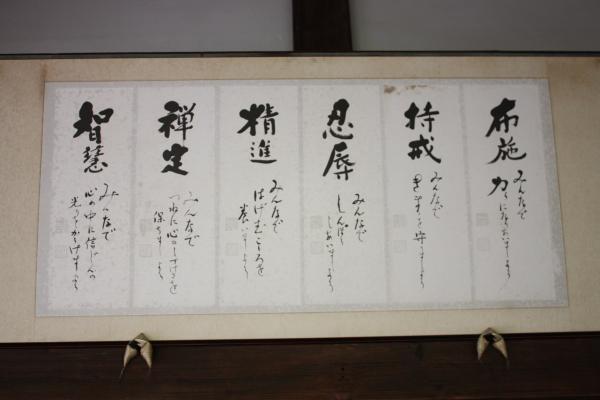 布施
みんなで
力になりあいましょう
持戒
みんなで
きまりを守りましょう
忍辱
みんなで
しんぼう
しあいましょう
精進
みんなで
はげむこころを
養いましょう
禅定
みんなで
つねに心のしずけさを
保ちましょう
智慧
みんなで
心の中に信じんの
光をかかげましょう